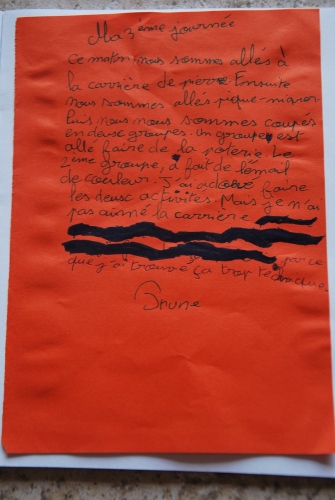 Ma 3ème journée
Ce matin nous sommes allés à
la carrière de pierre. Ensuite
nous sommes allés pique-niquer.
Puis nous nous sommes coupés
en deux groupes. Un groupe est
allé faire de la poterie. Le
2ème groupe, a fait de l'émail
de couleur. J'ai adoré faire
les deux activités. Mais je n'ai
pas aimé la carrière
parce
que j'ai trouvé ça trop technique
Prune